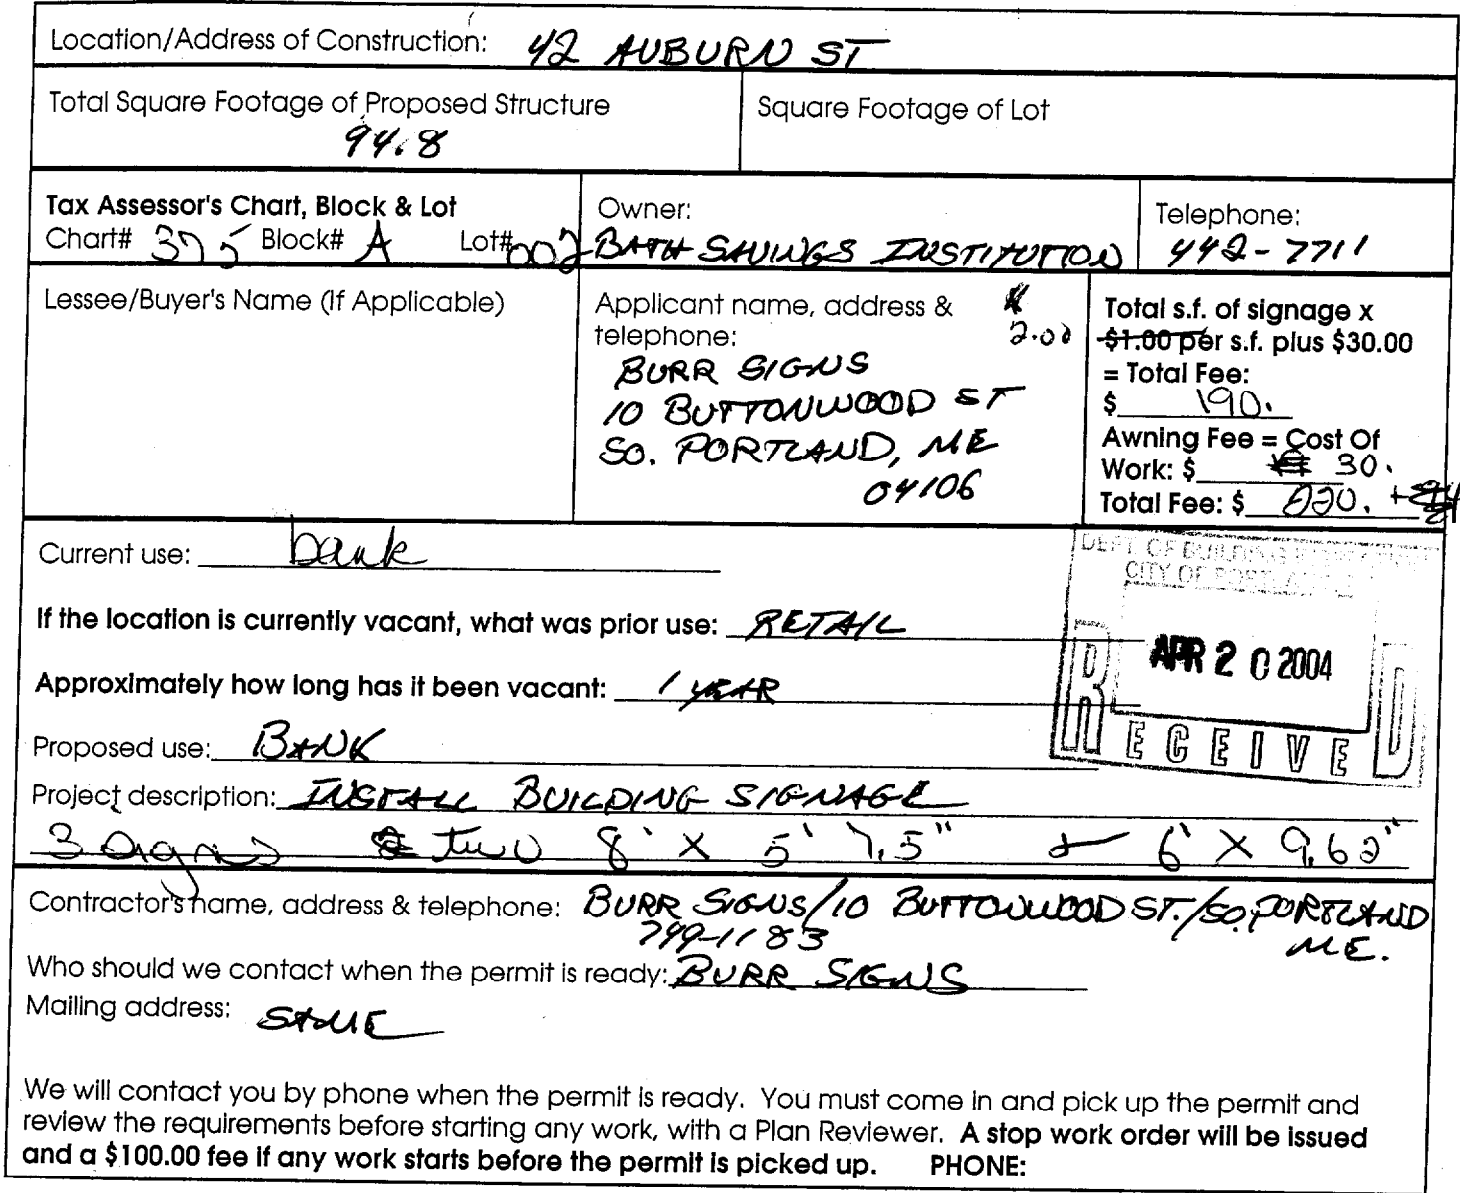 Location/Address of Construction: 42 AUBURN ST
Total Square Footage of Proposed Structure
94.8
Square Footage of Lot
Tax Assessor's Chart, Block & Lot
Chart# 375 Block# A Lot# 002
Owner:
BATH SAVINGS INSTITUTION
Telephone:
442-7711
Lessee/Buyer's Name (If Applicable)
Applicant name, address &
telephone:
BURR SIGNS
10 BUTTONWOOD ST
SO. PORTLAND, ME
04106
2.00
Total s.f. of signage x
$1.00 per s.f. plus $30.00
= Total Fee:
$ 190.
Awning Fee = Cost Of
Work: $ 30.
Total Fee: $ 220. +
Current use: bank
DEPT. OF BUILDING
CITY OF PORTLAND
APR 20 2004
RECEIVED
If the location is currently vacant, what was prior use: RETAIL
Approximately how long has it been vacant: 1 YEAR
Proposed use: BANK
Project description: INSTALL BUILDING SIGNAGE
3 signs two 8' X 5' 7.5" + 6' X 9.62"
Contractor's name, address & telephone: BURR SIGNS/10 BUTTONWOOD ST./SO. PORTLAND
799-1183 ME.
Who should we contact when the permit is ready: BURR SIGNS
Mailing address: SAME
We will contact you by phone when the permit is ready. You must come in and pick up the permit and
review the requirements before starting any work, with a Plan Reviewer. A stop work order will be issued
and a $100.00 fee if any work starts before the permit is picked up. PHONE: